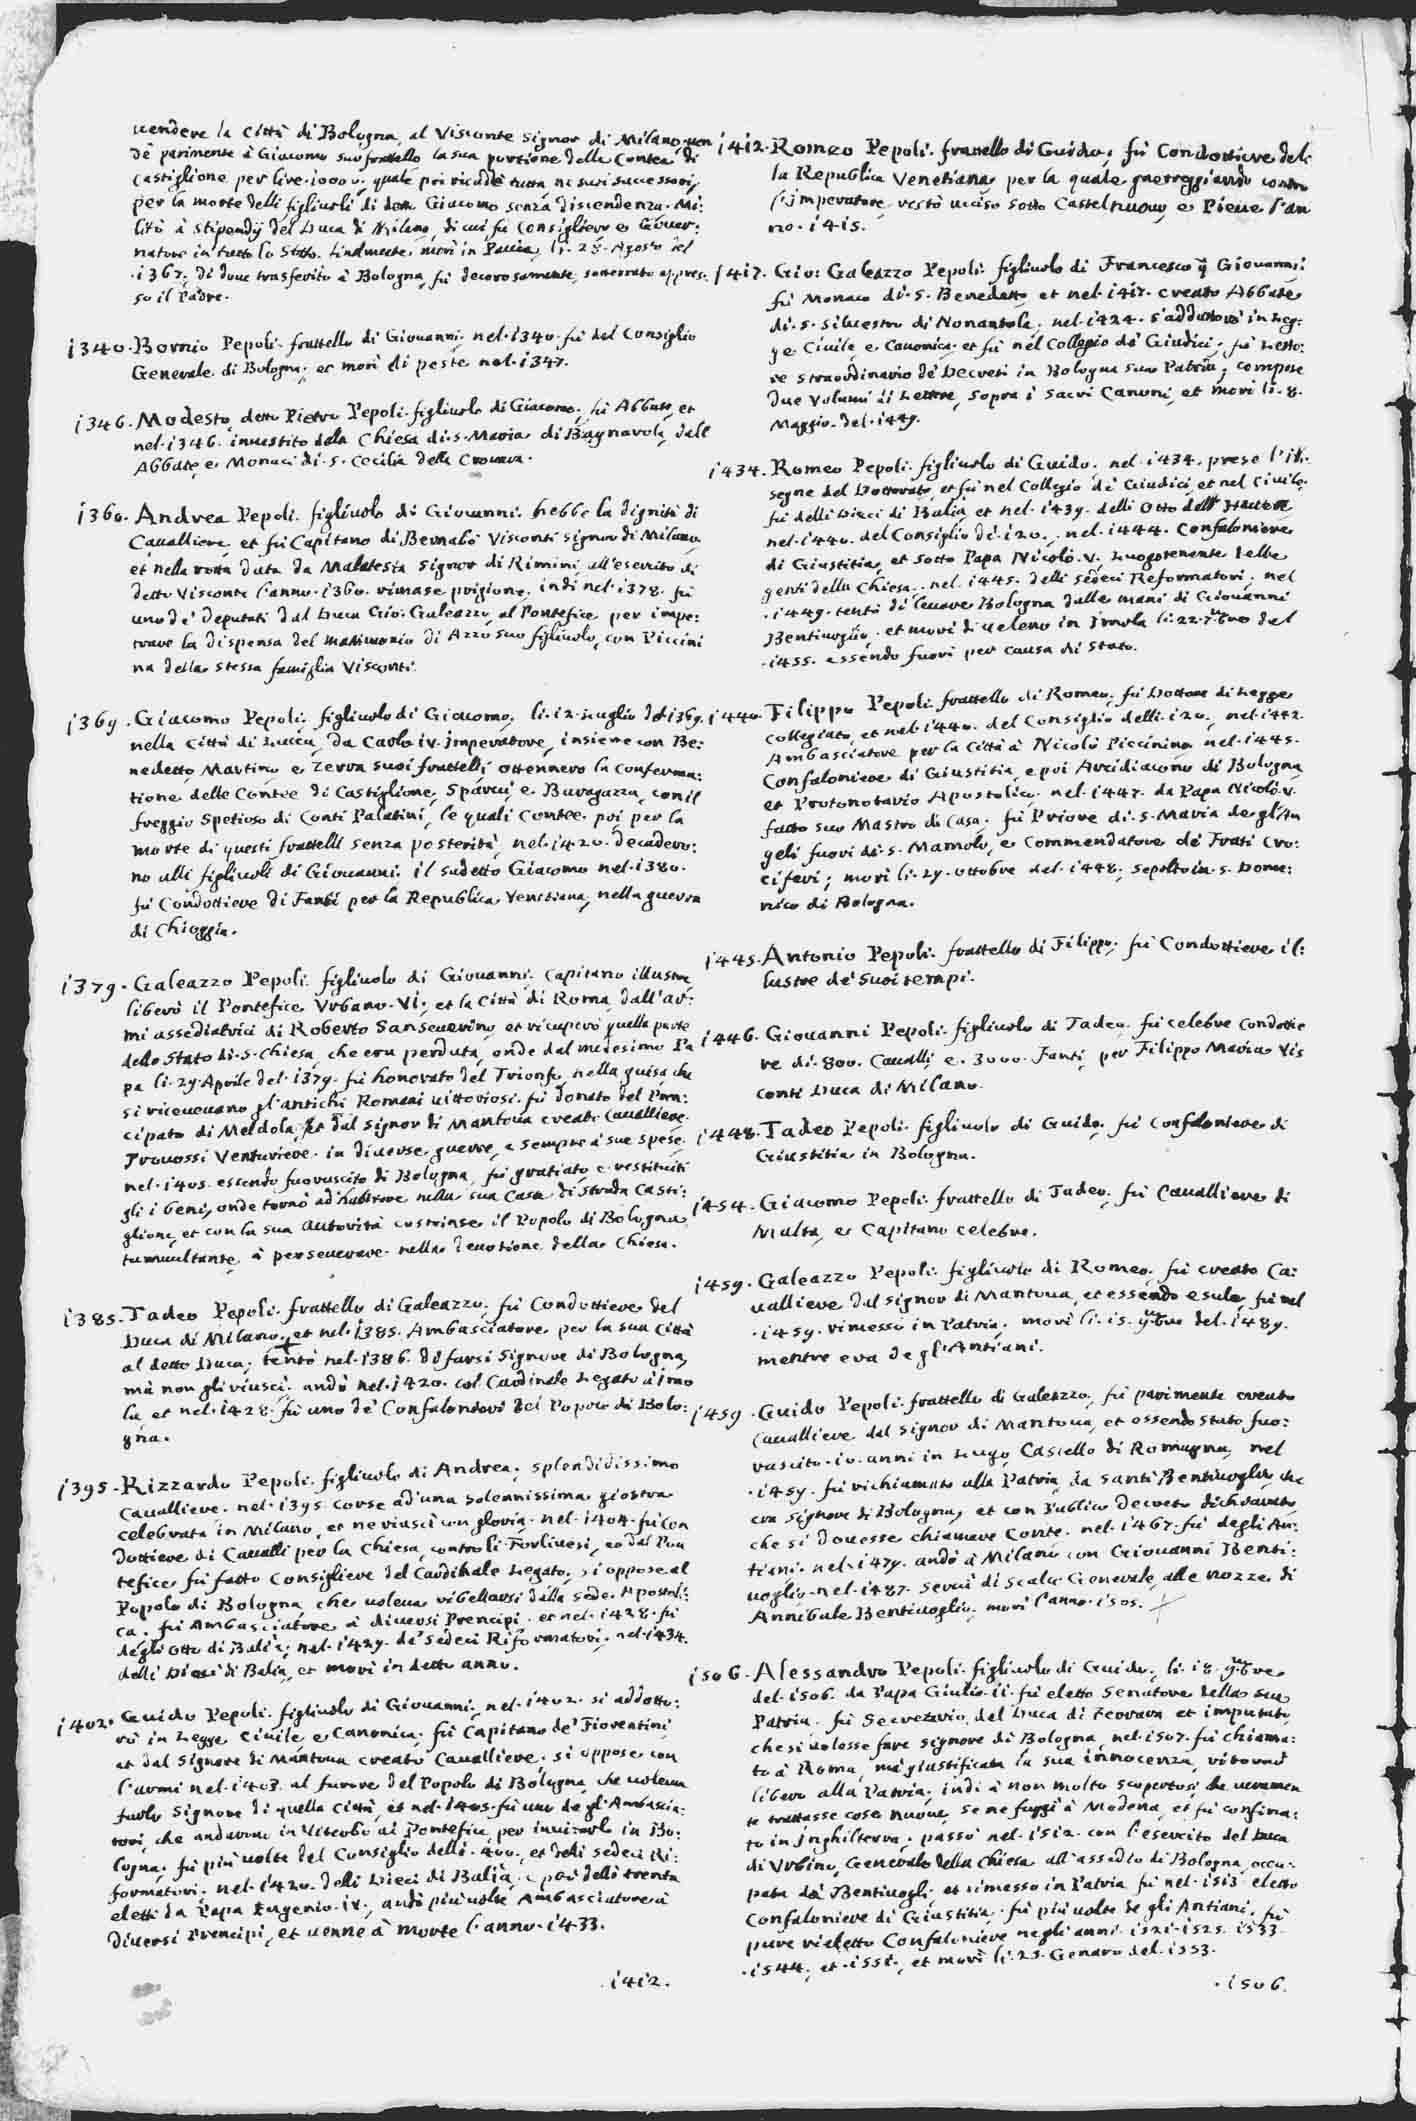 uendere la Città di Bologna, al Visconte Signor di Milano, uen
dè parimente à Giacomo suo fratello la sua portione della Contea di
Castiglione per lire. 10000. quale poi ricadde tutta ne suoi successori,
per la morte delli figliuoli di detto Giacomo senza discendenza. Mi:
litò à stipendij del Duca di Milano, di cui fù Consigliero e Gouer:
natore in tutto lo Stato. finalmente morì in Pauia, li. 28. Agosto del
.1367. di doue trasferito à Bologna, fù decorosamente, sotterrato appres:
so il Padre.
1340. Bornio Pepoli. frattello di Giouanni, nel. 1340. fù del Consiglio
Generale di Bologna; et morì di peste nel. 1347.
1346. Modesto, detto Pietro Pepoli. figliuolo di Giacomo, fù Abbate, et
nel. 1346. inuestito dela Chiesa di. S. Maria di Bagnarola, dall
Abbate e Monaci di. S. Cecilia della Crouara.
1360. Andrea Pepoli. figliuolo di Giouanni. hebbe la dignità di
Cauallere, et fù Capitano di Bernabò Visconti Signor di Milano
et nella rotta data da Malatesta Signor di Rimini all'esercito di
detto Visconte l'anno. 1360. rimase prigione. indi nel. 1378. fù
uno de' deputati dal Duca Gio: Galeazzo, al Pontefice, per impe:
trare la dispensa del matrimonio di Azzo suo figliuolo, con Piccini
na della stessa famiglia Visconti.
1369. Giacomo Pepoli. figliuolo di Giacomo, li. 12. Luglio del 1369.
nella Città di Lucca, da Carlo. iv. Imperatore, insieme con Be:
nedetto, Martino e Zerra suoi frattelli ottennero la conferma:
tione delle Contee di Castiglione, Sparui, e Baragazza, con il
freggio spetioso di Conti Palatini, le quali Contee. poi per la
morte di questi frattelli senza posterità, nel. 1420. decadero:
no alli figliuoli di Giouanni. il sudetto Giacomo nel. 1380.
fù Condottiere di Fanti per la Republica Venetiana, nella guerra
di Chioggia.
1379. Galeazzo Pepoli. figliuolo di Giouanni; Capitano illustre
liberò il Pontefice Vrbano. VI; et la Città di Roma, dall'ar:
mi assediatrici di Roberto Sanseuerino, et ricuperò quella parte
dello Stato di. S. Chiesa, che era perduta, onde dal medesimo Pa
pa li. 29 Aprile del. 1379. fù honorato del Trionfo, nella guisa che
si riceueuano gl'antichi Romani uittoriosi. fù donato del Prin:
cipato di Meldola, et dal Signor di Mantoua creato Cauallere.
Trouossi Venturiere. in diuerse guerre, e sempre à sue spese.
nel. 1405. essendo fuoruscito di Bologna, fù gratiato e restituiti
gli i beni, onde tornò ad habitare nella sua Casa di strada Casti:
glione, et con la sua autorità costrinse il Popolo di Bologna
tumultante, à perseuerare nella deuotione della Chiesa.
1385. Tadeo Pepoli. frattello di Galeazzo, fù Condottiere del
Duca di Milano, et nel. 1385. Ambasciatore per la sua Città
al detto Duca; tentò nel. 1386. di farsi Signore di Bologna,
mà non gli riuscì. andò nel. 1420. col Cardinale Legato à Imo
la et nel. 1428. fù uno de' Confalonieri del Popolo di Bolo:
gna.
1395. Rizzardo Pepoli. figliuolo di Andrea, splendidissimo
Cauallere. nel. 1395. corse ad'una solennissima giostra
celebrata in Milano, et ne riuscì con gloria. nel. 1404. fù Con
dottiere di Caualli per la Chiesa, contro li Forliuesi, et dal Pon
tefice fù fatto Consigliere del Cardinale Legato, si oppose al
Popolo di Bologna che uoleua ribellarsi dalla Sede Apostoli:
ca. fù Ambasciatore à diuersi Prencipi. et nel. 1428. fù
degli Otto di Balìa; nel. 1429. de' sedeci Riformatori. nel. 1434.
delli Dieci di Balìa, et morì in detto anno.
1402. Guido Pepoli. figliuolo di Giouanni, nel. 1402. si addotto:
rò in Legge Ciuile e Canonica. fù Capitano de' Fiorentini
et dal Signore di Mantoua creato Cauallere. si oppose con
l'armi nel. 1403. al furore del Popolo di Bologna, che uoleua
farlo Signore di quella Città, et nel. 1405. fù uno de gl'Ambascia:
tori, che andarono in Viterbo al Pontefice, per inuitarlo in Bo:
logna; fù più uolte del Consiglio delli. 400. et delli sedeci Ri:
formatori. nel. 1420. delli Dieci di Balìa, e poi delli trenta
eletti da Papa Eugenio. iv., andò più uolte Ambasciatore à
diuersi Prencipi, et uenne à morte l'anno. 1433.
.1412.
1412. Romeo Pepoli. fratello di Guido; fù Condottiere del:
la Republica Venetiana, per la quale guerreggiando contro
l'Imperatore, restò ucciso sotto Castelnuouo e Pieue l'an
no. 1415.
1417. Gio: Galeazzo Pepoli. figliuolo di Francesco q. Giouanni;
fù Monaco di. S. Benedetto, et nel. 1417. creato Abbate
di. S. Siluestro di Nonantola; nel. 1424. s'addottorò in Leg:
ge Ciuile e Canonica; et fù nel Collegio de' Giudici, fù Letto:
re straordinario de' Decreti in Bologna sua Patria; compose
due Volumi di Lettere, sopra i Sacri Canoni, et morì li. 8.
Maggio. del. 1449.
1434. Romeo Pepoli. figliuolo di Guido, nel. 1434. prese l'in:
segne del Dottorato, et fù nel Collegio de' Giudici, et nel Ciuile.
fù delli Dieci di Balìa et nel. 1439. delli Otto
nel. 1440. del Consiglio di. 120., nel. 1444. Confaloniere
di Giustitia, et sotto Papa Nicolò. V. Luogotenente delle
genti della Chiesa. nel. 1445. delli sedeci Reformatori. nel
.1449. tentò di leuare Bologna dalle mani di Giouanni
Bentiuoglio. et morì di ueleno in Imola li. 22. 7bre del
.1455. essendo fuori per causa di stato.
1440. Filippo Pepoli. frattello di Romeo; fù Dottore di Legge
Collegiato, et nel. 1440. del Consiglio delli. 120., nel. 1442.
Ambasciatore per la Città à Nicolò Piccinino nel. 1445.
Confaloniere di Giustitia, e poi Arcidiacono di Bologna
et Protonotario Apostolico. nel. 1447. da Papa Nicolò. V.
fatto suo Mastro di Casa. fù Priore di. S. Maria degl'An
geli fuori di. S. Mamolo, e Commendatore de' Frati Cro:
ciferi; morì li. 29. ottobre del. 1448; sepolto in. S. Dome:
nico di Bologna.
1445. Antonio Pepoli. frattello di Filippo; fù Condottiere il:
lustre de' suoi tempi.
1446. Giouanni Pepoli. figliuolo di Tadeo; fù celebre Condottie
re di. 800. Caualli e. 3000. Fanti, per Filippo Maria Vis
conti Duca di Milano.
1448. Tadeo Pepoli. figliuolo di Guido, fù Confaloniere di
Giustitia in Bologna.
1454. Giacomo Pepoli. frattello di Tadeo; fù Caualliere di
Malta, e Capitano celebre.
1459. Galeazzo Pepoli. figliuolo di Romeo, fù creato Ca:
ualliere dal Signor di Mantoua, et essendo esule, fù nel
.1459. rimesso in Patria. morì li. 15. 9bre del. 1489.
mentre era degl'Antiani.
1459. Guido Pepoli. frattello di Galeazzo, fù parimente creato
Caualliere dal Signor di Mantoua, et essendo stato fuo:
ruscito. 10. anni in Lugo, Castello di Romagna, nel
.1459. fù richiamato alla Patria, da Santi Bentiuoglio, che
era Signore di Bologna, et con Publico Decreto dichiarato
che si douesse chiamare Conte. nel. 1467. fù degli An:
tiani. nel. 1479. andò à Milano con Giouanni Benti:
uoglio. nel. 1487. seruì di Scalco Generale, alle nozze di
Annibale Bentiuoglio. morì l'anno. 1505.
1506. Alessandro Pepoli. figliuolo di Guido, li. 18. 9bre
del. 1506. da Papa Giulio. II. fù eletto Senatore della sua
Patria. fù Secretario del Duca di Ferrara et imputato
che si uolesse fare Signore di Bologna, nel. 1507. fù chiama:
to à Roma, mà giustificata la sua innocenza, ritornò
libero alla Patria; indi à non molto scopertosi che ueramen
te trattasse cose nuoue, se ne fuggì à Modena, et fù confina:
to in Inghilterra. passò nel. 1512. con l'esercito del Duca
di Vrbino, Generale della Chiesa all'assedio di Bologna, occu:
pata da' Bentiuogli; et rimesso in Patria fù nel. 1513 eletto
Confaloniere di Giustitia. fù più uolte de gli Antiani. fù
pure rieletto Confaloniere negli anni. 1521. 1525. 1533.
.1544. et. 1551., et morì li. 25. Genaro del. 1553.
.1506.